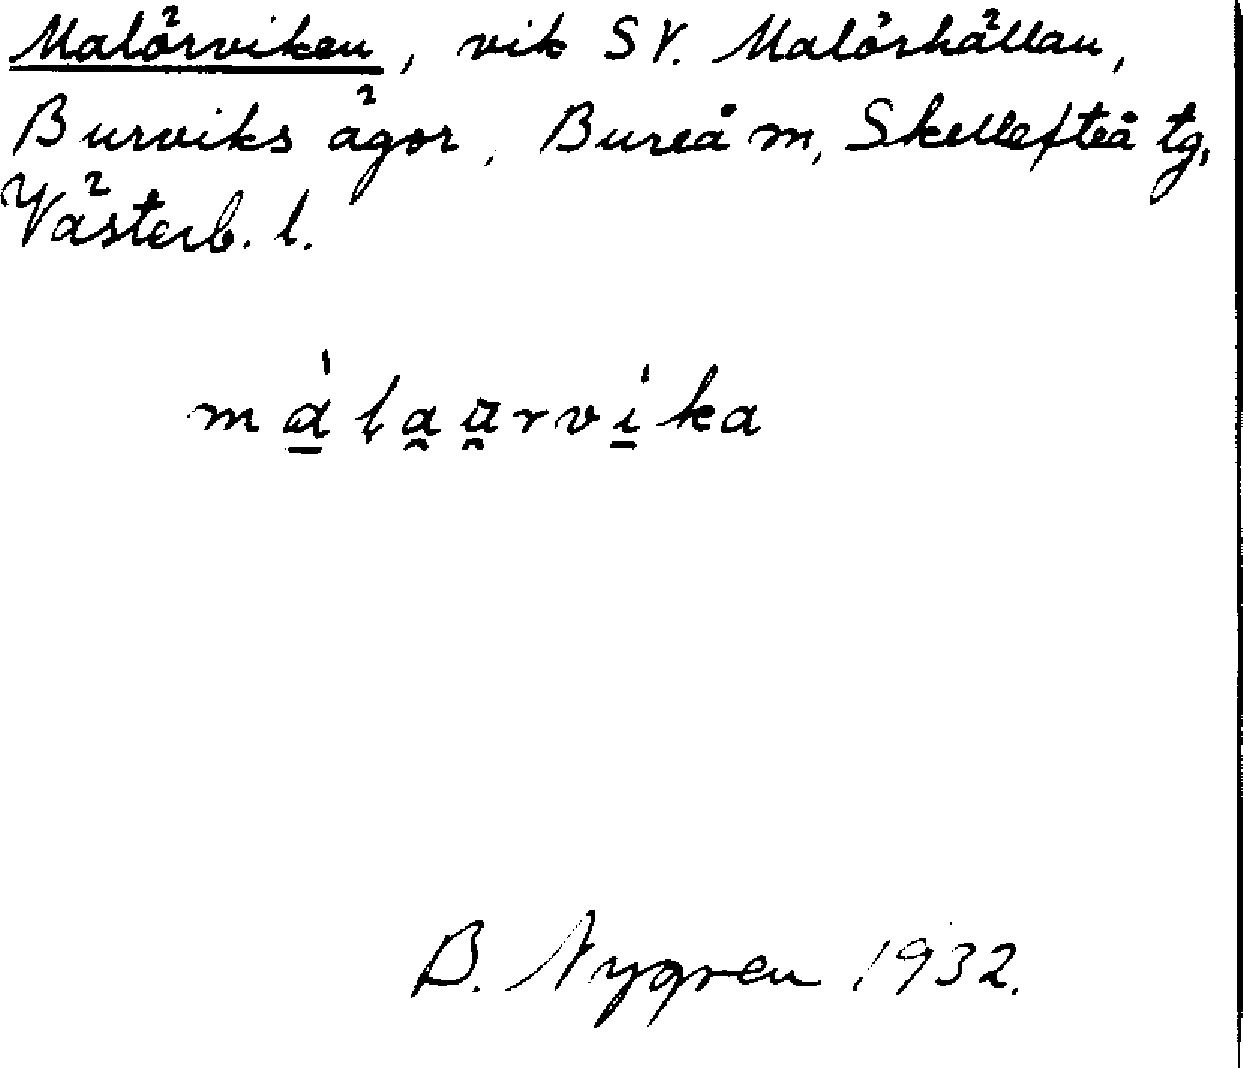 Malörviken, vik SV. Malörhällan,
Burviks ägor, Bureå m, Skellefteå tg,
Västerb. l.
B. Nygren 1932.